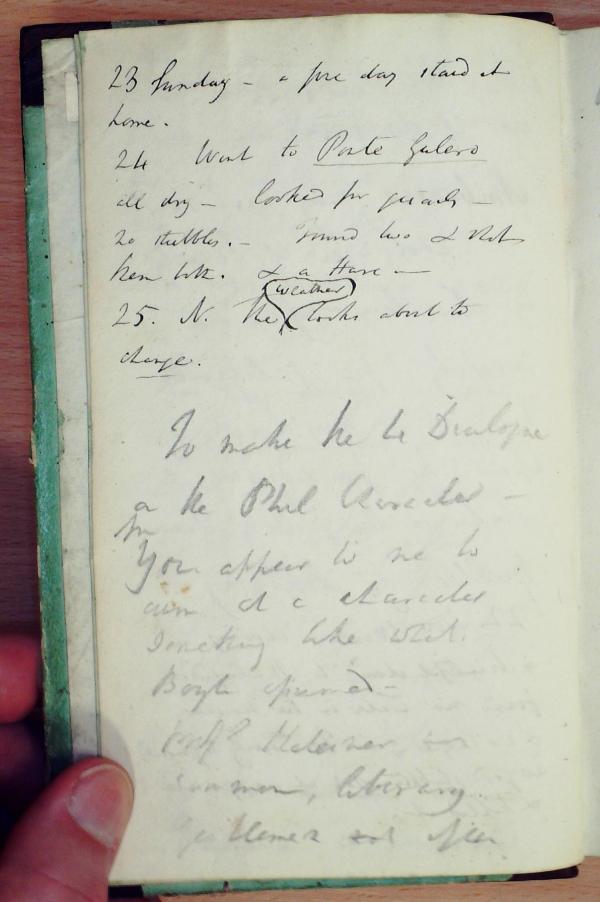 23 Sunday - a fine day staid at
home.
24 Went to Porte Galero
all dry - looked for quails -
20 stubbles. - Found two & shot
them both. & a Hare -
weather
25. N. The looks about to
change.
To make the 4 Dialogue
on the Phil Character -
You appear to me to
aim at a character
Something like what
Boyle
common, literary
Gentlemen after